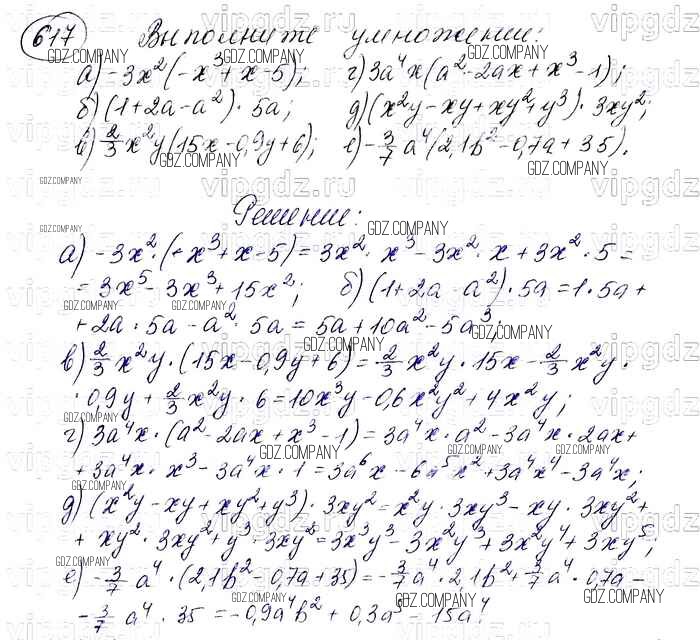 617 Выполните умножение:
а) -3x²(-x³+x-5); г) 3a⁴x(a²-2ax+x³-1);
б) (1+2a-a²)·5a; д) (x²y-xy+xy²+y³)·3xy²;
в) 2/3 x²y(15x-0,9y+6); е) -3/7 a⁴(2,1b²-0,7a+35).
Решение:
а) -3x²·(-x³+x-5) = 3x²·x³-3x²·x+3x²·5 =
= 3x⁵-3x³+15x²; б) (1+2a-a²)·5a = 1·5a+
+2a·5a-a²·5a = 5a+10a²-5a³;
в) 2/3 x²y·(15x-0,9y+6) = 2/3 x²y·15x-2/3 x²y·
·0,9y+2/3 x²y·6 = 10x³y-0,6x²y²+4x²y;
г) 3a⁴x·(a²-2ax+x³-1) = 3a⁴x·a²-3a⁴x·2ax+
+3a⁴x·x³-3a⁴x·1 = 3a⁶x-6a⁵x²+3a⁴x⁴-3a⁴x;
д) (x²y-xy+xy²+y³)·3xy² = x²y·3xy³-xy·3xy²+
+xy²·3xy²+y³·3xy² = 3x³y³-3x²y³+3x²y⁴+3xy⁵;
е) -3/7 a⁴·(2,1b²-0,7a+35) = -3/7 a⁴·2,1b²+3/7 a⁴·0,7a-
-3/7 a⁴·35 = -0,9a⁴b²+0,3a⁵-15a⁴